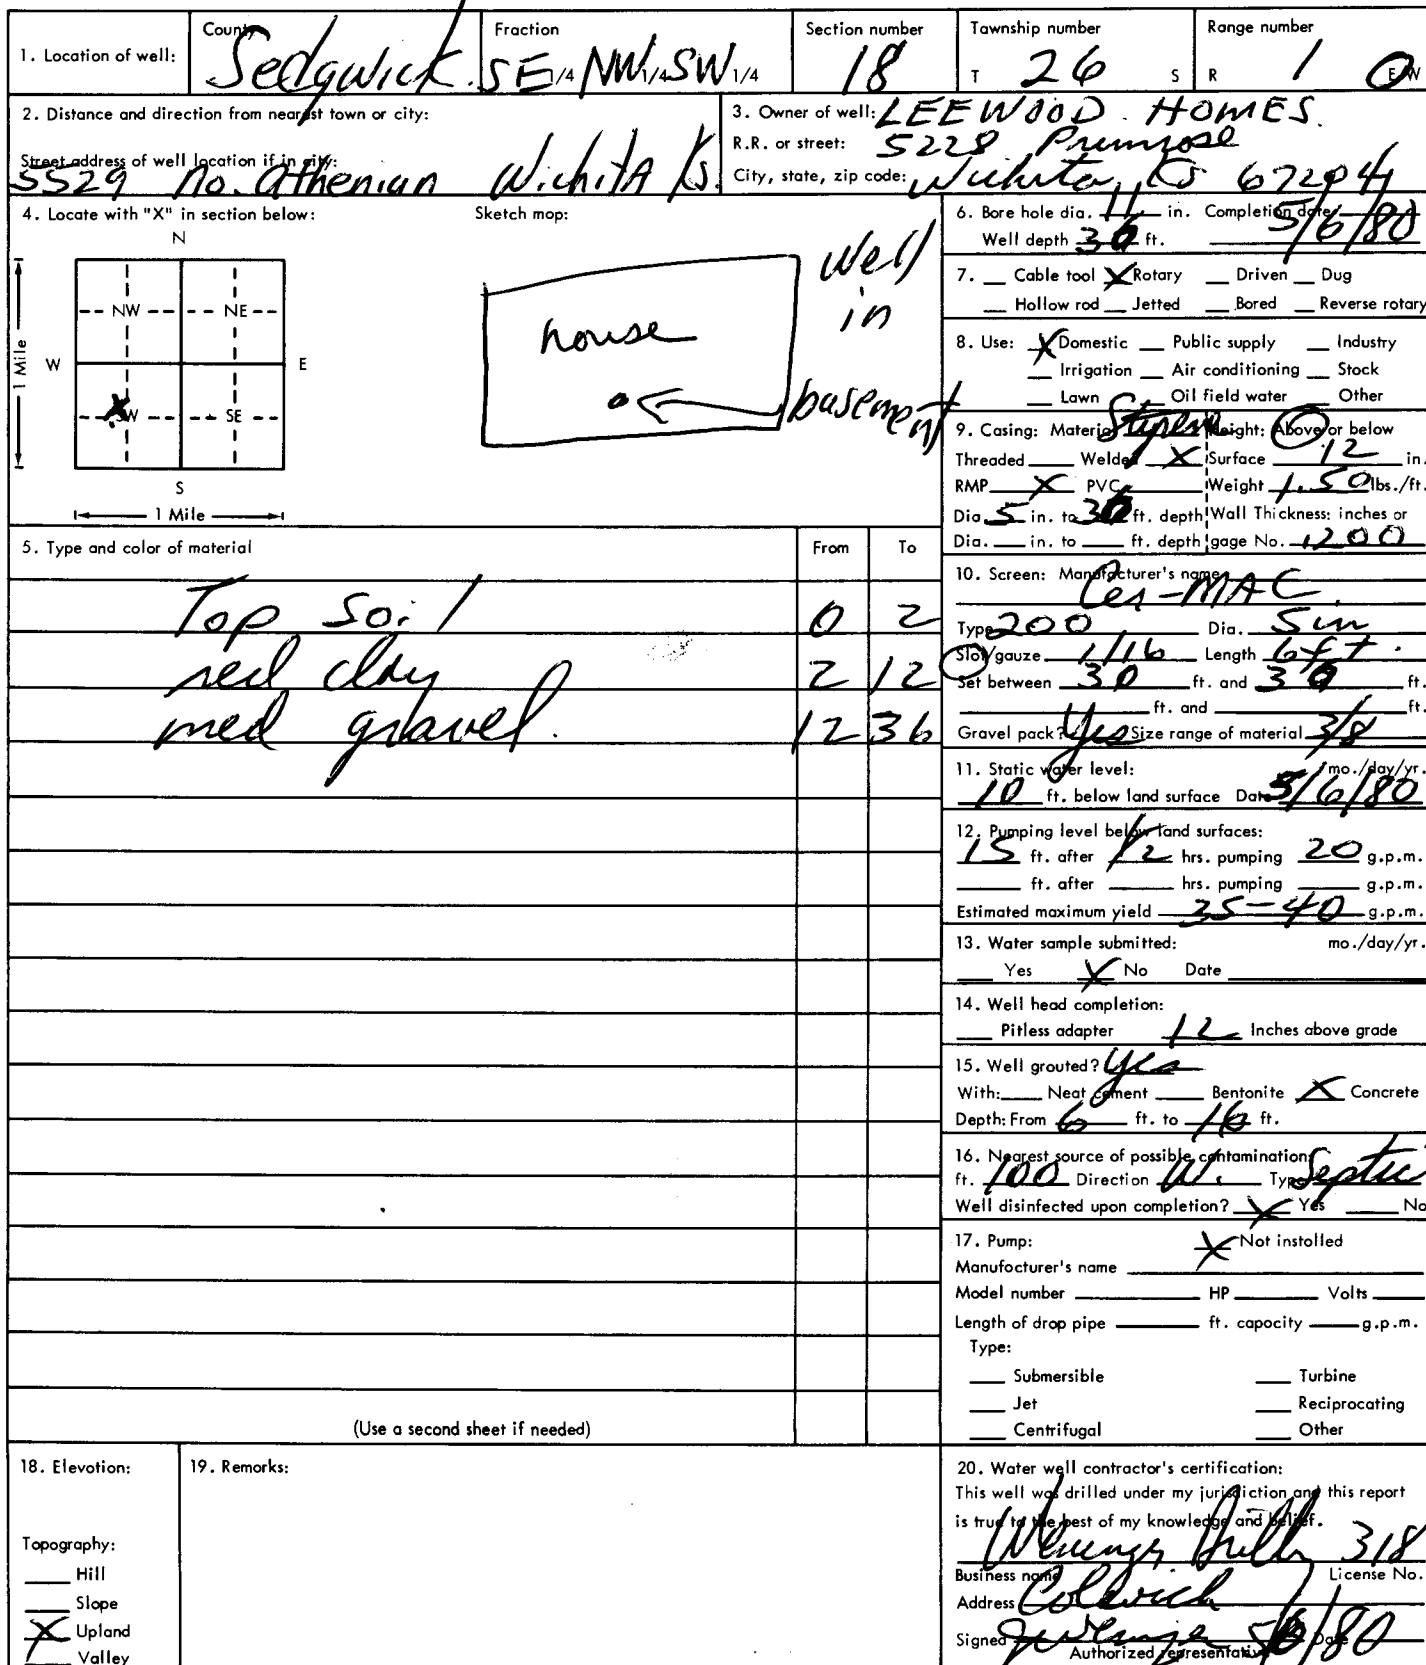 1. Location of well: County Sedgwick Fraction SE 1/4 NW 1/4 SW 1/4 Section number 18 Township number T 26 S Range number R 1 E W
2. Distance and direction from nearest town or city:
Street address of well location if in city:
5529 No. Athenian Wichita Ks.
3. Owner of well: LEEWOOD HOMES.
R.R. or street: 5228 Primrose
City, state, zip code: Wichita, Ks 67204
4. Locate with "X" in section below:
N
NW NE
W E
1 Mile
X
SW SE
S
1 Mile
Sketch map:
house
well
in
basement
5. Type and color of material From To
Top Soil 0 2
red clay 2 12
med gravel. 12 36
(Use a second sheet if needed)
6. Bore hole dia. 11 in. Completion date 5/6/80
Well depth 36 ft.
7. Cable tool X Rotary Driven Dug
Hollow rod Jetted Bored Reverse rotary
8. Use: X Domestic Public supply Industry
Irrigation Air conditioning Stock
Lawn Oil field water Other
9. Casing: Material Height: Above or below
Threaded Welded X Surface 12 in.
RMP X PVC Weight 1.50 lbs./ft.
Dia. 5 in. to 30 ft. depth Wall Thickness: inches or
Dia. in. to ft. depth gage No. .200
10. Screen: Manufacturer's name
Type 200 Dia. 5 in
Slot/gauze 1/16 Length 6 ft.
Set between 30 ft. and ft.
ft. and ft.
Gravel pack? Yes Size range of material 3/8
11. Static water level: mo./day/yr.
10 ft. below land surface Date 5/6/80
12. Pumping level below land surfaces:
15 ft. after 1/2 hrs. pumping 20 g.p.m.
ft. after hrs. pumping g.p.m.
Estimated maximum yield 35-40 g.p.m.
13. Water sample submitted: mo./day/yr.
Yes X No Date
14. Well head completion:
Pitless adapter 12 Inches above grade
15. Well grouted? Yes
With: Neat cement Bentonite X Concrete
Depth: From 6 ft. to 16 ft.
16. Nearest source of possible contamination:
ft. 100 Direction W. Type Septic
Well disinfected upon completion? X Yes No
17. Pump: X Not installed
Manufacturer's name
Model number HP Volts
Length of drop pipe ft. capacity g.p.m.
Type:
Submersible Turbine
Jet Reciprocating
Centrifugal Other
18. Elevation:
Topography:
Hill
Slope
X Upland
Valley
19. Remarks:
20. Water well contractor's certification:
This well was drilled under my jurisdiction and this report
is true to the best of my knowledge and belief.
318
Business name License No.
Address Colwich
Signed 5/6/80 Date
Authorized representative